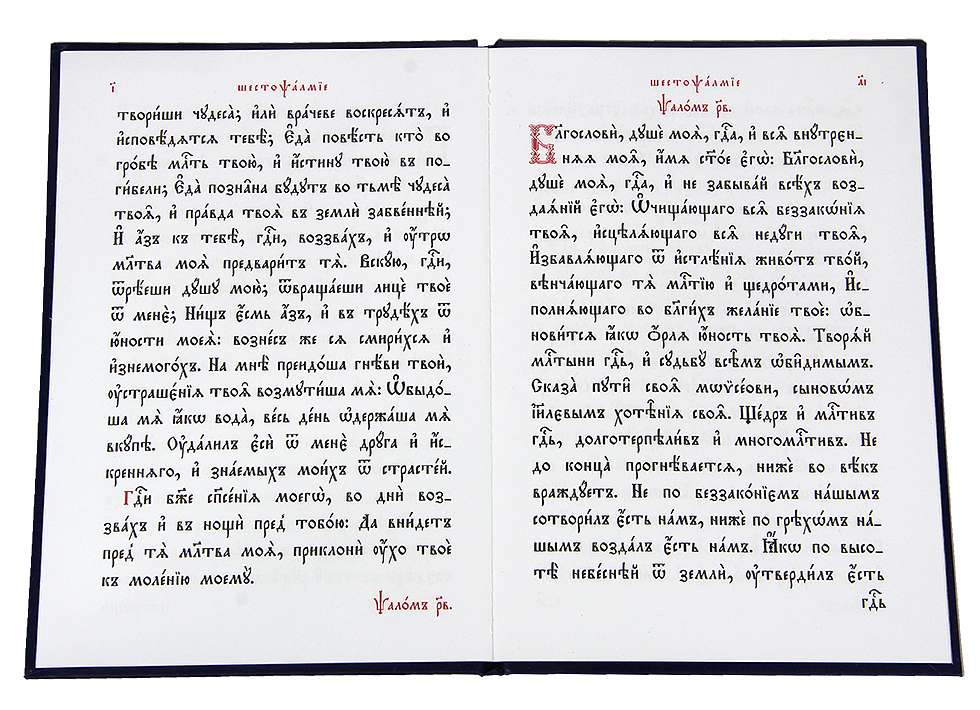 і҃
шестоѱа́лмїе
твори́ши чꙋдеса̀; и҆лѝ вра́чеве воскреса́тъ, и҆
и҆сповѣ́дѧтсѧ тебѣ̀; Є҆да̀ повѣ́сть кто̀ во
гро́бѣ мл҃ть твою̀, и҆ и҆́стинꙋ твою̀ въ по-
ги́бели; Є҆да̀ позна̑на бꙋ́дꙋтъ во тьмѣ̀ чꙋдеса̀
твоѧ̑, и҆ пра́вда твоѧ̀ въ землѝ забве́ннѣй;
И҆ а҆́зъ къ тебѣ̀, гдⷭ҇и, воззва́хъ, и҆ оу҆́трѡ
мл҃тва моѧ̀ предвари́тъ тѧ̀. Вскꙋ́ю, гдⷭ҇и,
ѿрѣ́еши дꙋ́шꙋ мою̀; ѿвраща́еши лицѐ твоѐ
ѿ менє̀; Ни́щъ є҆́смь а҆́зъ, и҆ въ трꙋдѣ́хъ ѿ
ю҆́ности моеѧ̀: вознѐсъ же сѧ смири́хсѧ и҆
и҆знемого́хъ. На мнѣ̀ преидо́ша гнѣ́ви твоѝ,
оу҆страшє́нїѧ твоѧ̑ возмꙋти́ша мѧ̀: Ѡ҆быдо́-
ша мѧ̀ ꙗ҆́кѡ вода̀, ве́сь де́нь ѡ҆держа́ша мѧ̀
вкꙋ́пѣ. Оу҆да́лилъ є҆сѝ ѿ менє̀ дрꙋ́га и҆ и҆́с-
креннѧго, и҆ зна́емыхъ мои́хъ ѿ страсте́й.
Гдⷭ҇и бж҃е сп҃се́нїѧ моегѡ̀, во днѝ воз-
зва́хъ и҆ въ нощѝ пред̾ тобо́ю: Да вни́детъ
пред̾ тѧ̀ мл҃тва моѧ̀, приклонѝ оу҆́хо твоѐ
къ моле́нїю моемꙋ̀.
Ѱало́мъ р҃в.
а҃і
шестоѱа́лмїе
Ѱало́мъ р҃в.
Бл҃гословѝ, дꙋшѐ моѧ̀, гдⷭ҇а, и҆ всѧ̑ внꙋ́трен-
нѧѧ моѧ̑, и҆́мѧ ст҃о́е є҆гѡ̀: Бл҃гословѝ,
дꙋшѐ моѧ̀, гдⷭ҇а, и҆ не забыва́й всѣ́хъ воз-
даѧ́нїй є҆гѡ̀: Ѡ҆чища́ющаго всѧ̑ беззакѡ́нїѧ
твоѧ̑, и҆сцѣлѧ́ющаго всѧ̑ недꙋ́ги твоѧ̑,
И҆збавлѧ́ющаго ѿ и҆стлѣ́нїѧ живо́тъ тво́й,
вѣнча́ющаго тѧ̀ мл҃тїю и҆ щедро́тами, И҆с-
полнѧ́ющаго во бл҃ги́хъ жела́нїе твоѐ: ѡ҆б-
нови́тсѧ ꙗ҆́кѡ Ѻ҆́рлѧ ю҆́ность твоѧ̀. Творѧ́й
мл҃тыни гдⷭ҇ь, и҆ сꙋдьбꙋ̀ всѣ̑мъ ѡ҆би́димымъ.
Сказа̀ пꙋтѝ своѧ̑ мѡѷсе́ови, сыновѡ́мъ
і҆и҃лєвымъ хотѣ̑нїѧ своѧ̑. Ще́дръ и҆ мл҃тивъ
гдⷭ҇ь, долготерпѣли́въ и҆ многомл҃тивъ. Не
до конца̀ прогнѣ́ваетсѧ, нижѐ во вѣ́къ
враждꙋ́етъ. Не по беззако́нїємъ на́шымъ
сотвори́лъ є҆́сть на́мъ, нижѐ по грѣхѡ́мъ на́-
шымъ возда́лъ є҆́сть на́мъ. Ꙗ҆́кѡ по высо-
тѣ̀ небе́снѣй ѿ землѝ, оу҆тверди́лъ є҆́сть
гдⷭ҇ь